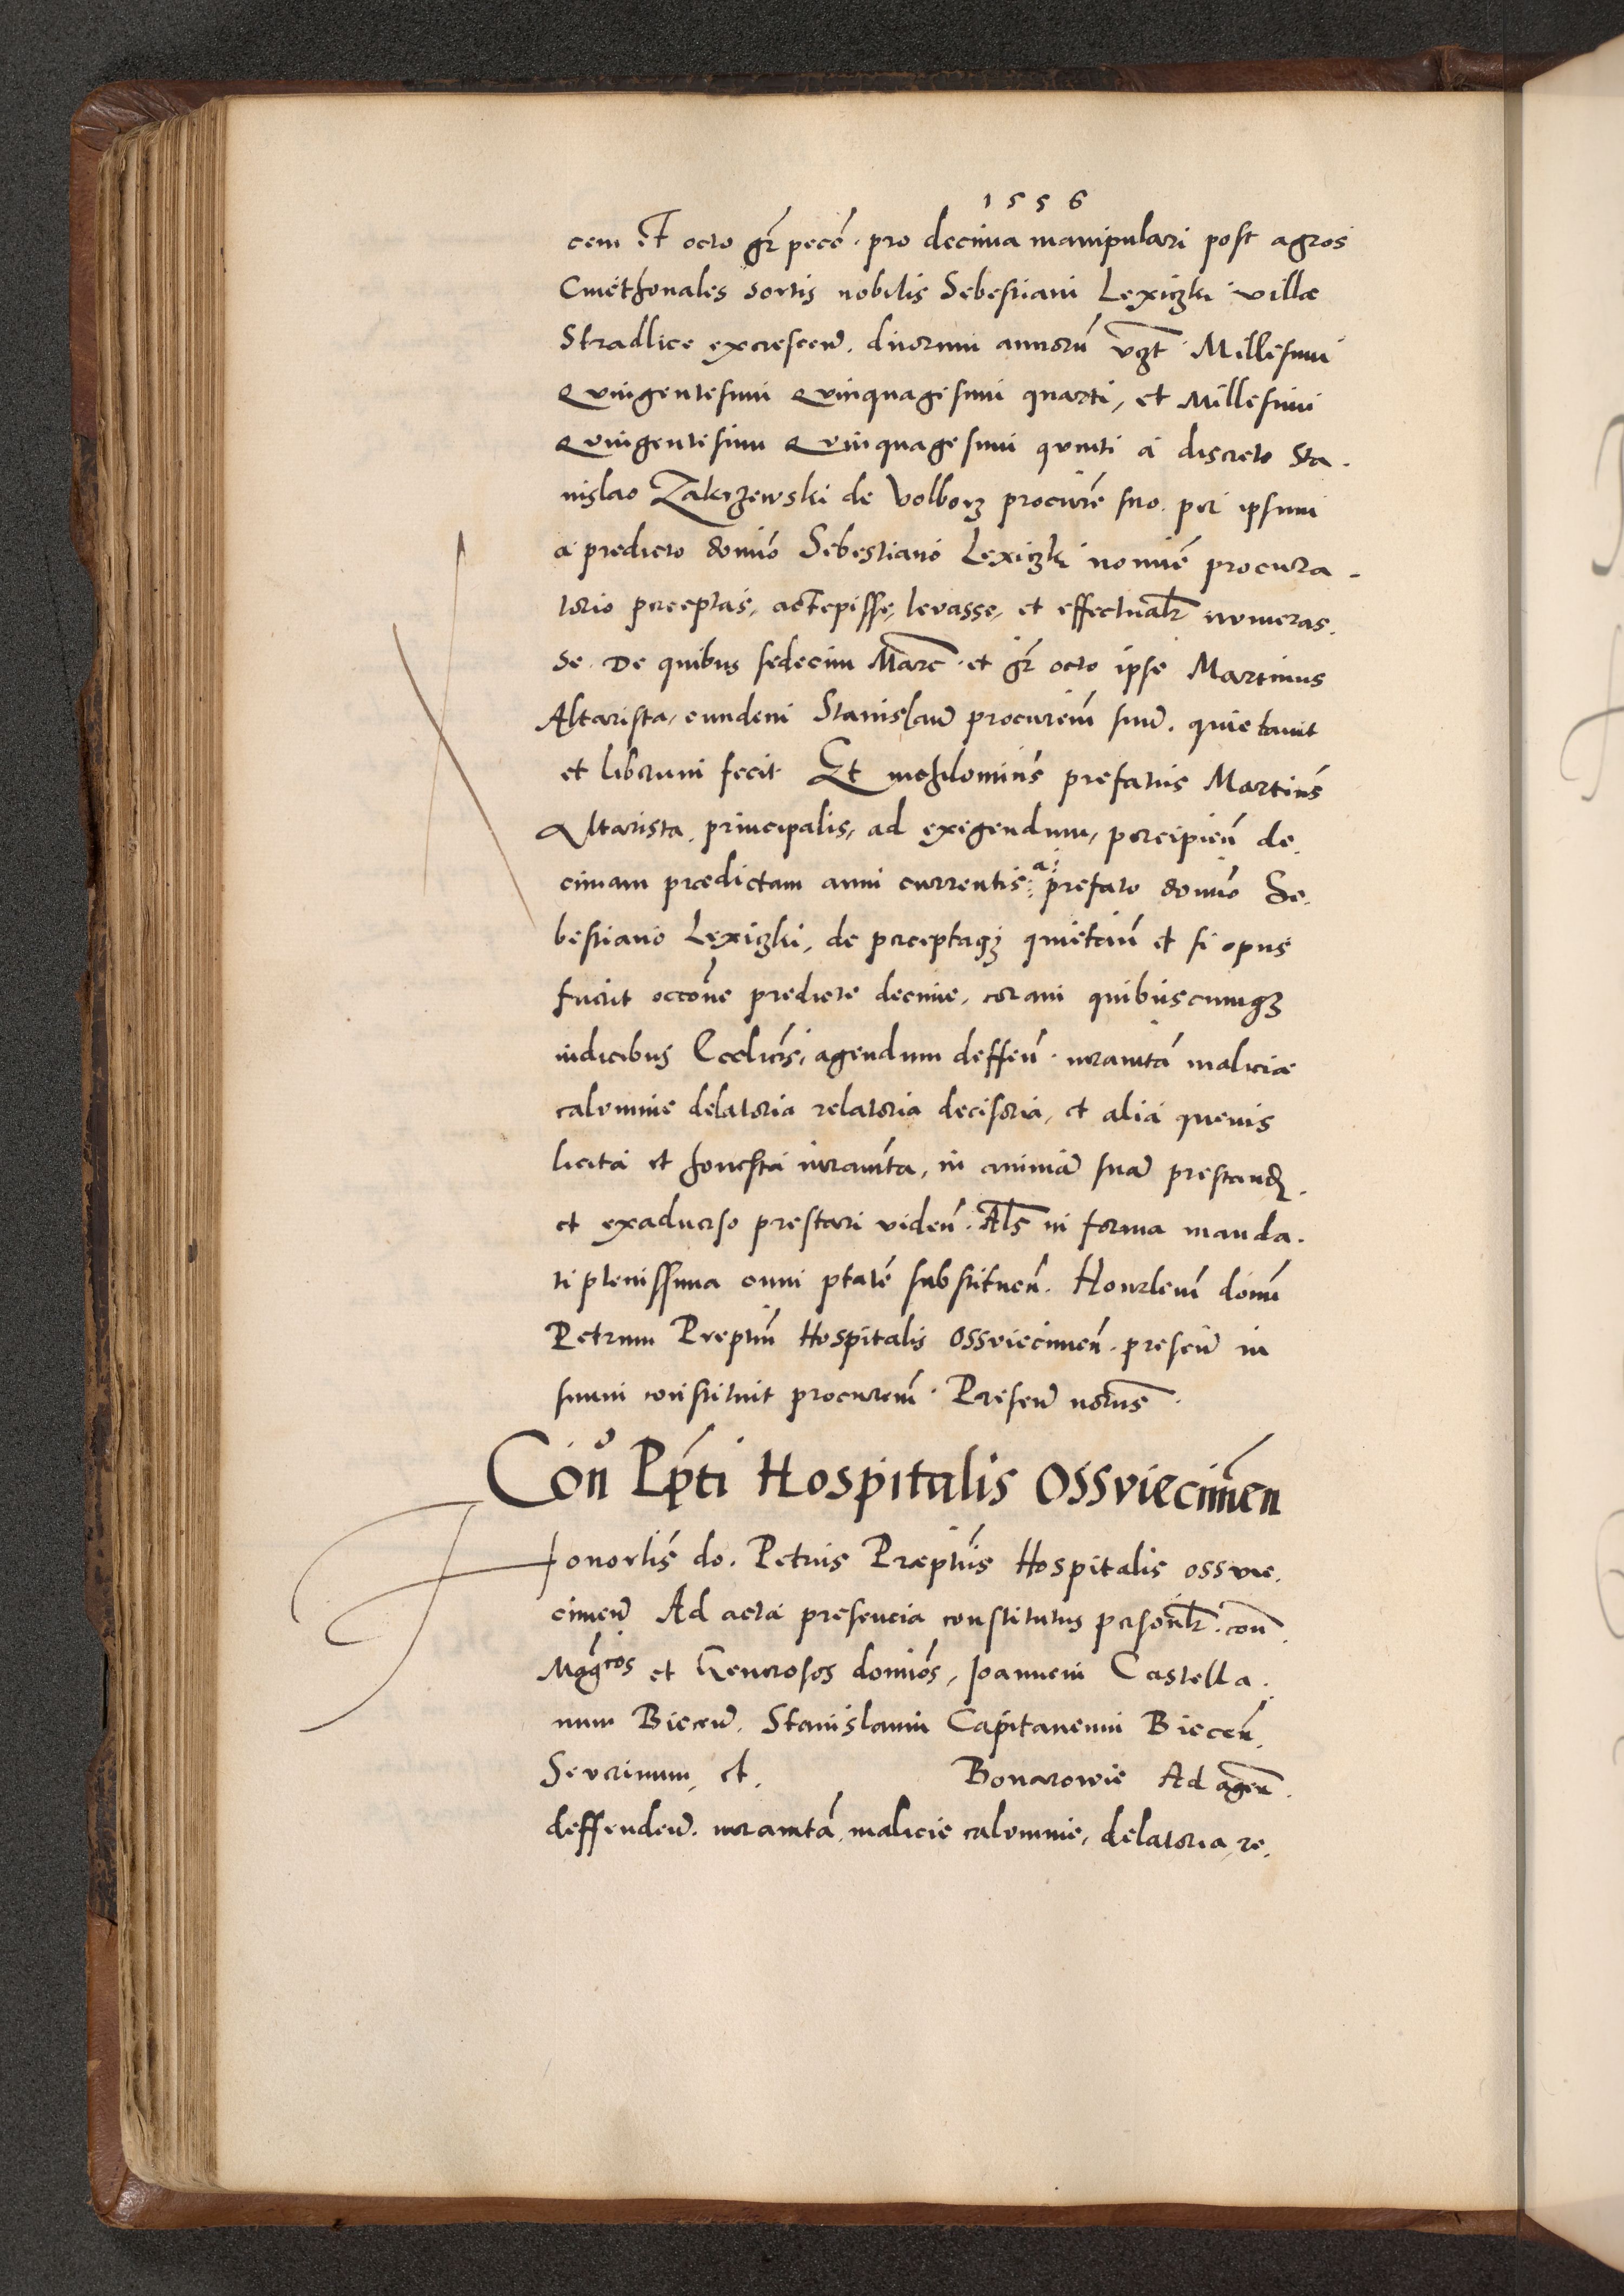 1556
cem Et octo gr̄ pecē. pro decima manipulari post agros
Cmethonales sortis nobilis Sebestiani Lexiczki villæ
Stradlice excrescen̄. duorum annorū vz̄t Millesimi
Quingentesimi Quinquagesimi quarti, et Millesimi
Quingentesimi Quinquagesimi quinti a discreto Sta.
nislao Zakrzewski de Volborz procurē suo. per ipsum
a predicto domīo Sebestiano Lexiczki nomiē procura.
torio perceptas, accepisse, levasse, et effectualr̄ numeras.
se. De quibus sedecim Marc̄. et gr̄ octo ipse Martinus
Altarista, eundem Stanislaū procurem̄ suū. quietavit
et liberum fecit Et nichilomin̄s prefatus Martin̄s
Altarista. principalis, ad exigendum, percipien̄ de.
cimam prædictam anni currentis: a prefato domīo Se.
bestiano Lexiczki, de perceptaqz quietan̄ et si opus
fuerit occōne predicte decime, coram quibuscumqz
iudicibus Ecclīcīs, agendum deffen̄. iuramtā maliciæ
calumnie delatoria relatoria decisoria, et alia quevis
licita et honesta iuramt̄a, in animā suā prestand.
et exadverso prestari viden̄. Als̄ in forma manda.
ti plenissima cum ptatē substituen̄. Honorlem̄ domī
Petrum Preptum̄ Hospitalis Ossviecimen̄. presen̄ in
suum constituit procurem̄. Presen̄ notīs.
Con̄o Pp̄ti Hospitalis Ossviecimēn
Honorlīs do. Petrus Præptūs Hospitalis ossvie.
cimen̄ Ad acta presencia constitutus personlr̄. con̄.
Maḡcos et Generosos domīos, Joannem Castella.
num Biecen̄. Stanislaum Capitaneum Biecen̄.
Severinum, et. Bonarowie Ad agen̄.
deffenden̄. iuramtā, malicie calumnie, delatoria, re.